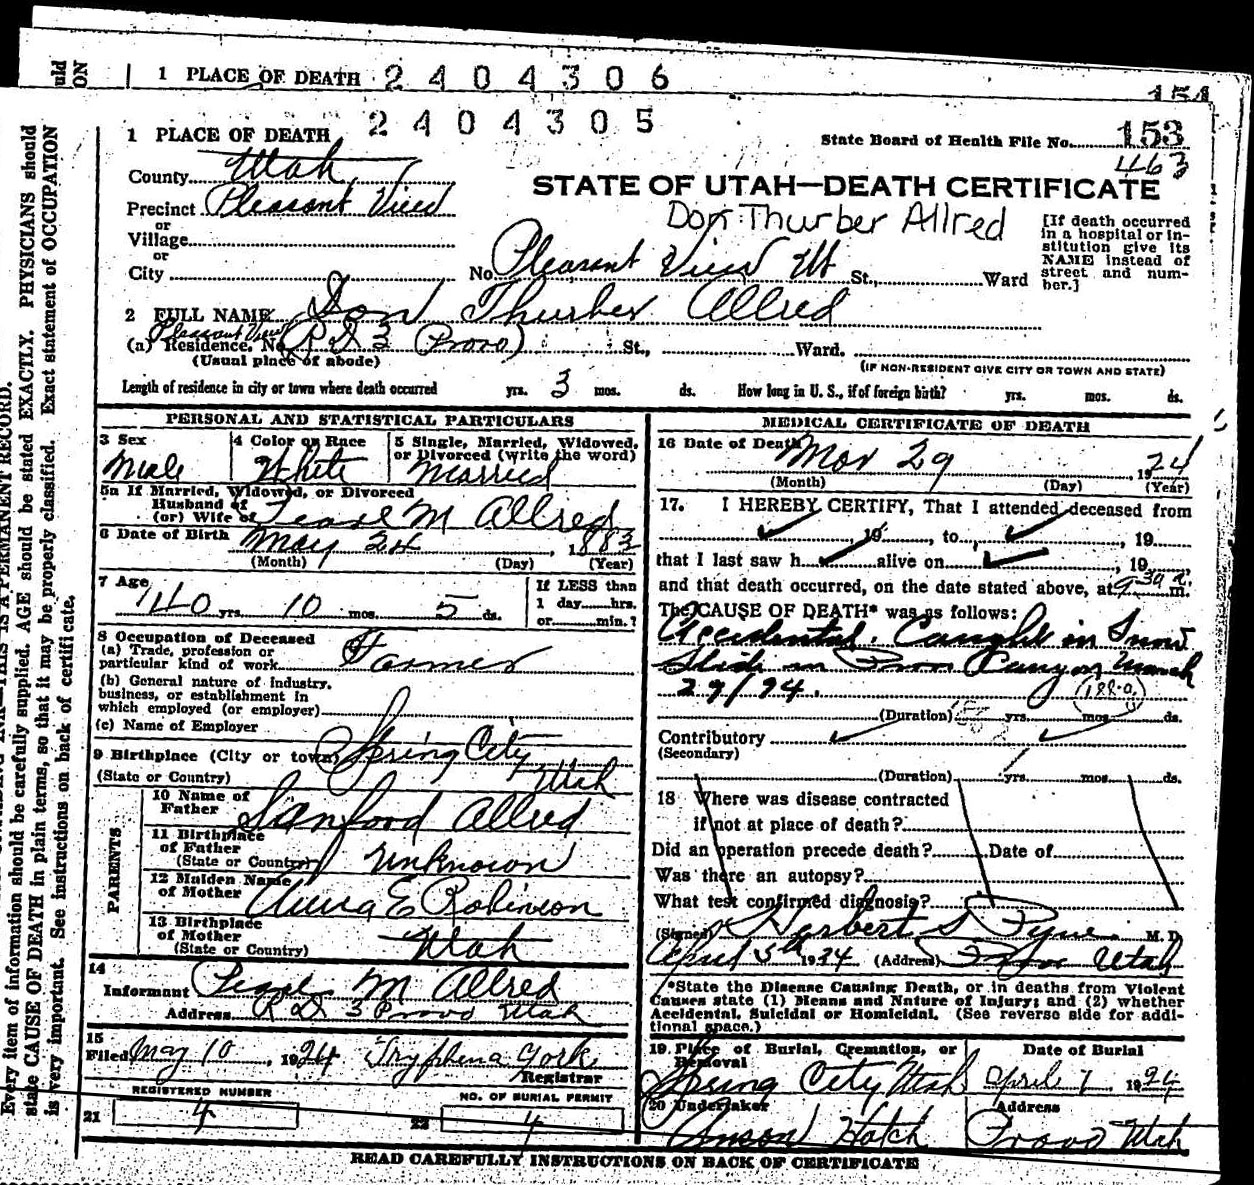 uld
ON
1 PLACE OF DEATH 2404306
154
2404305
1 PLACE OF DEATH
State Board of Health File No. 153
463
County Utah
STATE OF UTAH—DEATH CERTIFICATE
Precinct Pleasant View
Don Thurber Allred
or
Village
or
City
No. Pleasant View Ut St., Ward
[If death occurred
in a hospital or in-
stitution give its
NAME instead of
street and num-
ber.]
2 FULL NAME Don Thurber Allred
Pleasant View
(a) Residence. No. R D 3 (Provo) St., Ward.
(Usual place of abode)
(IF NON-RESIDENT GIVE CITY OR TOWN AND STATE)
Length of residence in city or town where death occurred yrs. 3 mos. ds. How long in U. S., if of foreign birth? yrs. mos. ds.
PERSONAL AND STATISTICAL PARTICULARS
3 Sex
Male
4 Color or Race
White
5 Single, Married, Widowed,
or Divorced (write the word)
Married
5a If Married, Widowed, or Divorced
Husband of
(or) Wife of Pearl M Allred
6 Date of Birth May 24, 1883
(Month) (Day) (Year)
7 Age
40 yrs. 10 mos. 5 ds.
If LESS than
1 day......hrs.
or......min.?
8 Occupation of Deceased
(a) Trade, profession or
particular kind of work Farmer
(b) General nature of industry,
business, or establishment in
which employed (or employer)
(c) Name of Employer
9 Birthplace (City or town) Spring City
(State or Country) Utah
PARENTS
10 Name of
Father Sanford Allred
11 Birthplace
of Father
(State or Country) Unknown
12 Maiden Name
of Mother Anna E Robinson
13 Birthplace
of Mother
(State or Country) Utah
14
Informant Pearl M Allred
Address R D 3 Provo Utah
15
Filed May 10, 1924 Tryphena York
Registrar
REGISTERED NUMBER
21 4
NO. OF BURIAL PERMIT
22 4
MEDICAL CERTIFICATE OF DEATH
16 Date of Death Mar 29 1924
(Month) (Day) (Year)
17. I HEREBY CERTIFY, That I attended deceased from
, 19 , to , 19
that I last saw h alive on , 19
and that death occurred, on the date stated above, at 9 30 a. m.
The CAUSE OF DEATH* was as follows:
Accidental. Caught in Snow
Slide in Provo Canyon March
29/24.
(188-a)
(Duration) yrs. mos. ds.
Contributory
(Secondary)
(Duration) yrs. mos. ds.
18 Where was disease contracted
if not at place of death?
Did an operation precede death? Date of
Was there an autopsy?
What test confirmed diagnosis?
(Signed) Herbert S Pyne M. D.
April 5th 1924 (Address) Provo Utah
*State the Disease Causing Death, or in deaths from Violent
Causes state (1) Means and Nature of Injury; and (2) whether
Accidental, Suicidal or Homicidal. (See reverse side for addi-
tional space.)
19. Place of Burial, Cremation, or
Removal
Spring City Utah
Date of Burial
April 1 1924
20 Undertaker
Anson Hatch
Address
Provo Utah
READ CAREFULLY INSTRUCTIONS ON BACK OF CERTIFICATE
Every item of information should be carefully supplied. AGE should be stated EXACTLY. PHYSICIANS should
state CAUSE OF DEATH in plain terms, so that it may be properly classified. Exact statement of OCCUPATION
is very important. See instructions on back of certificate.
THIS IS A PERMANENT RECORD.